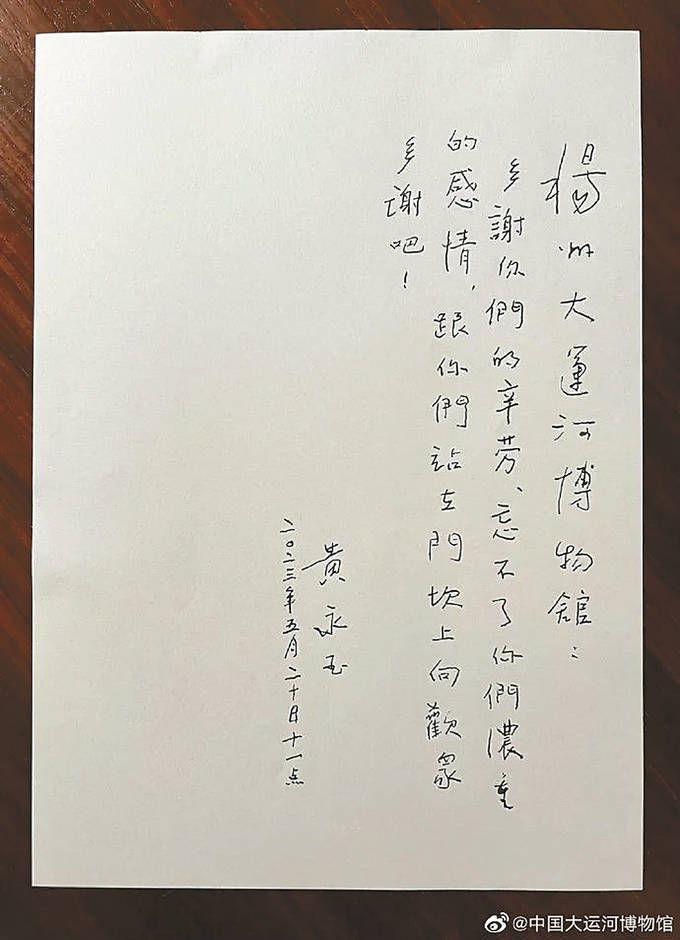 楊州大運河博物館：
多謝你們的辛劳、忘不了你們濃重
的感情，跟你們站在門坎上向觀眾
多谢吧！
黄永玉
二〇二三年五月二十日十一点
@中国大运河博物馆